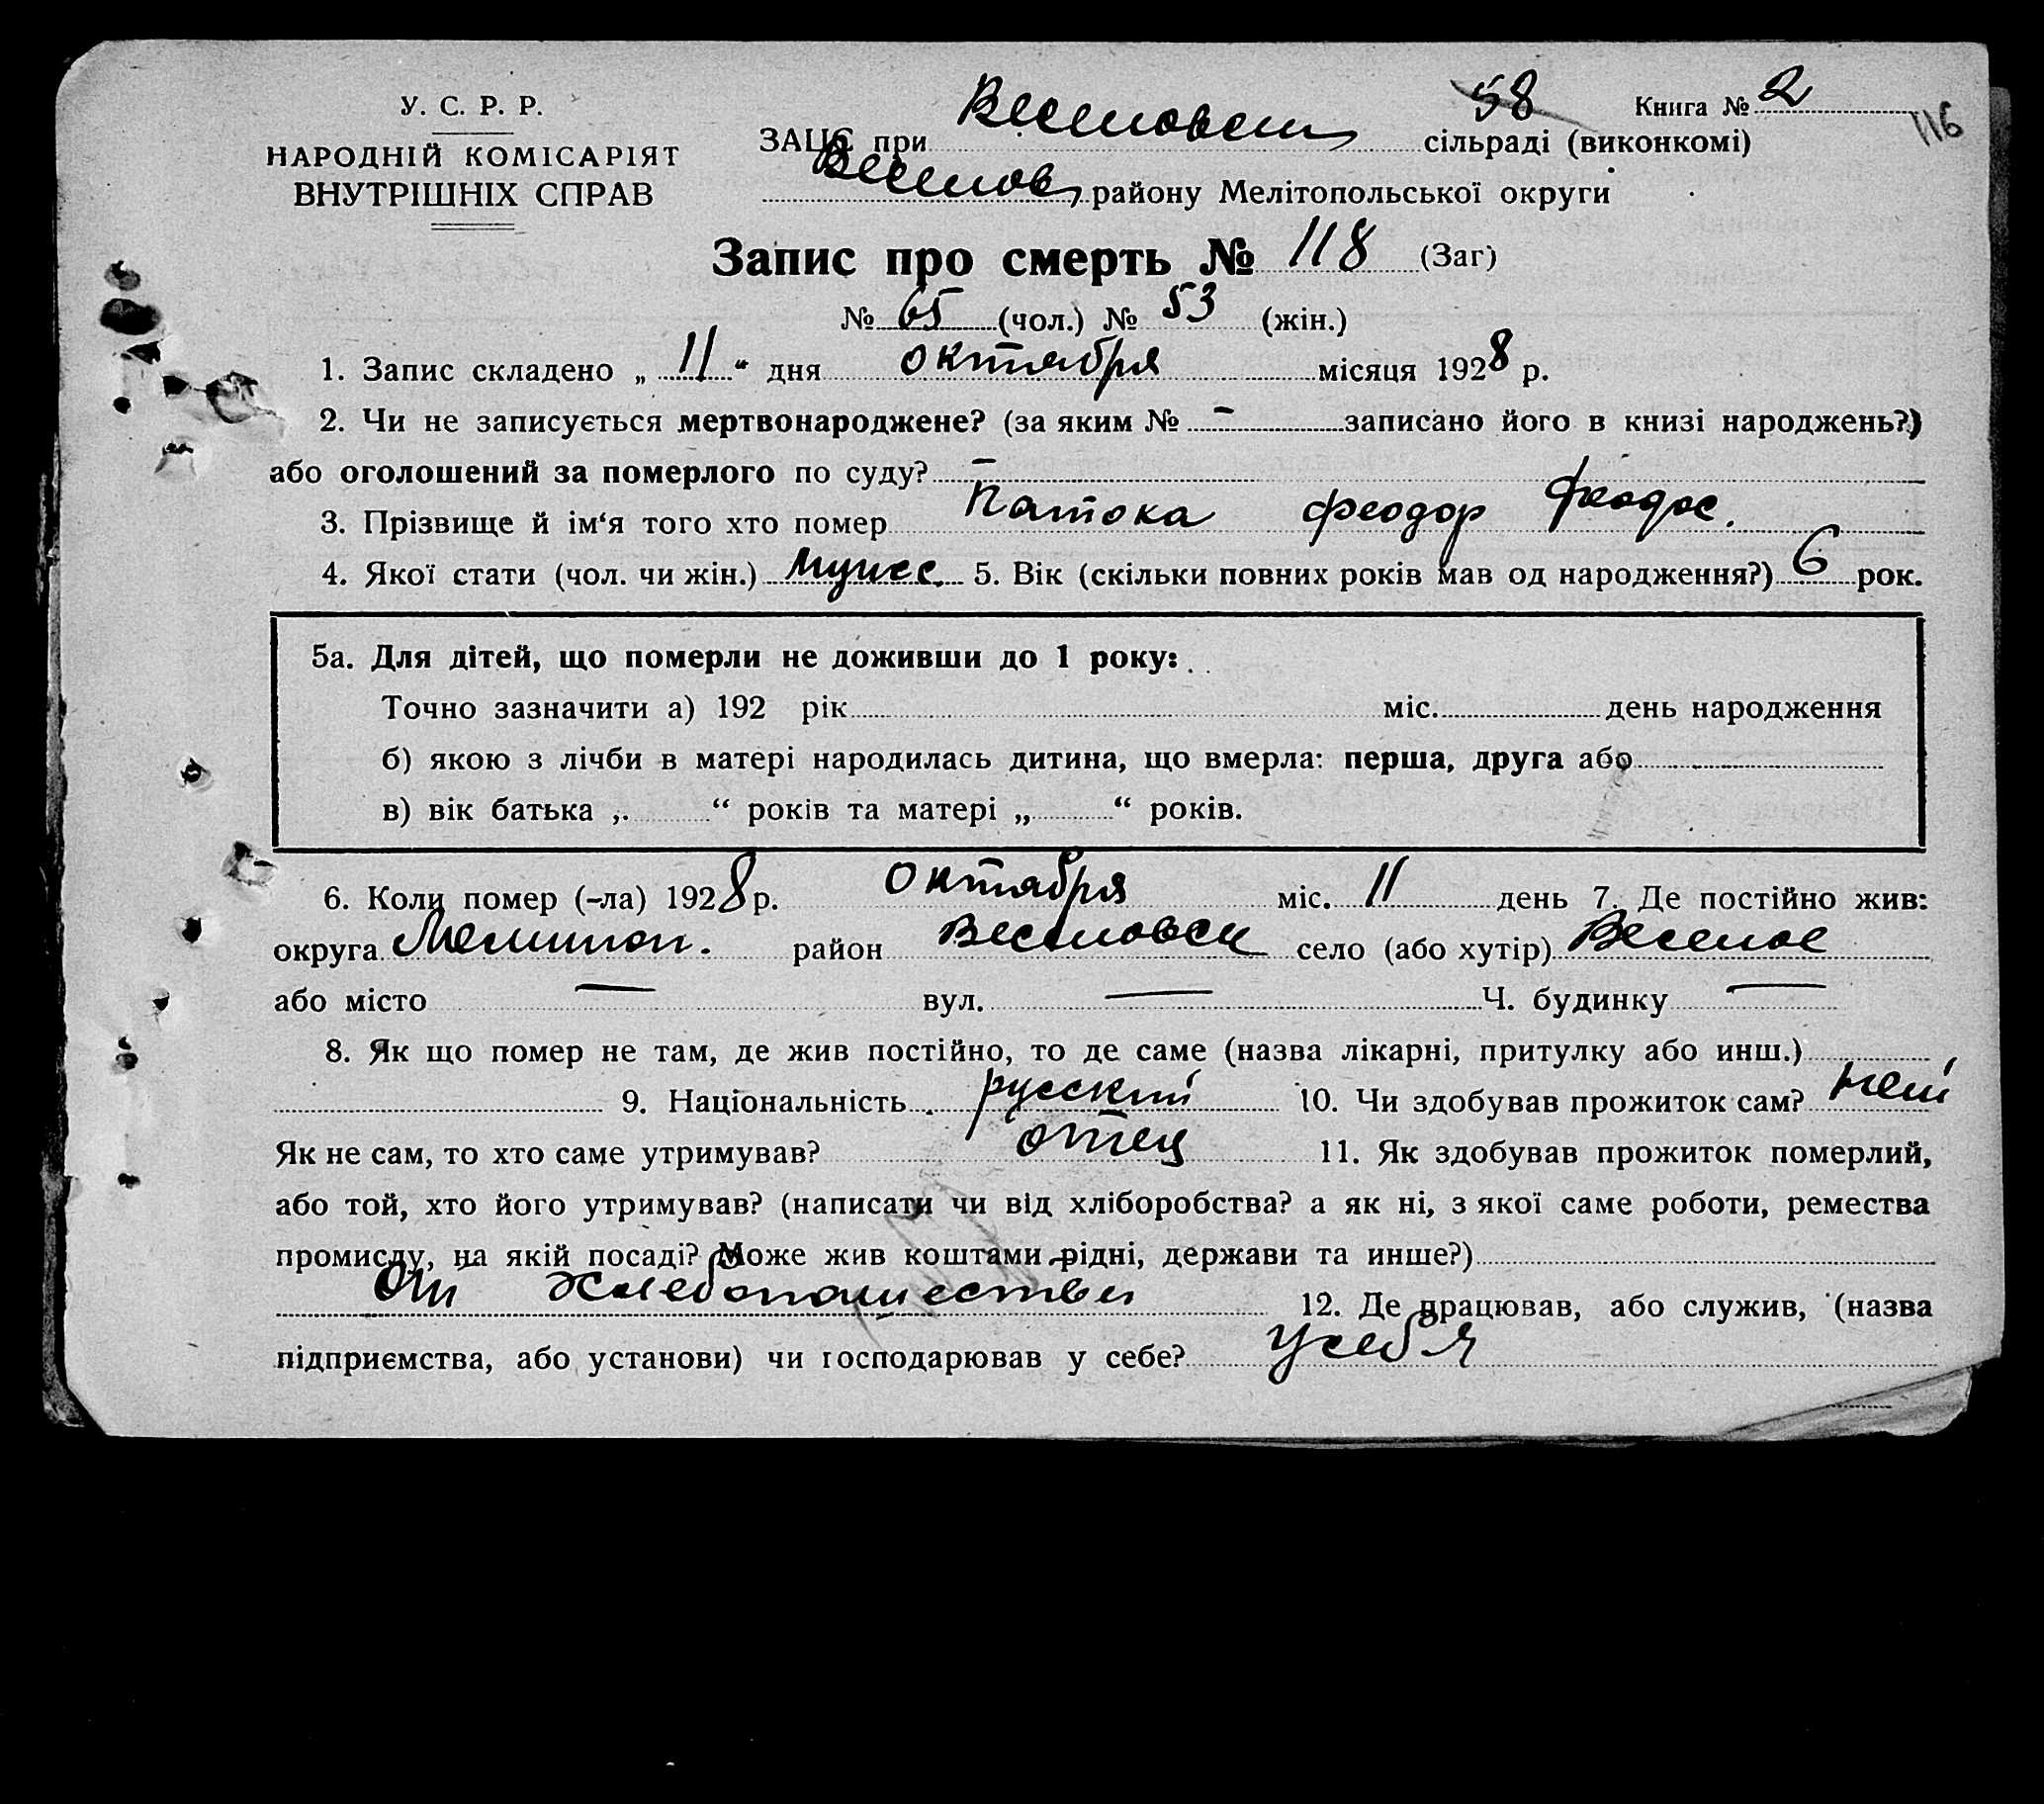 У. С. Р. Р.
НАРОДНІЙ КОМІСАРІЯТ
ВНУТРІШНІХ СПРАВ
58 Книга № 2
116
ЗАЦС при Веселовском сільраді (виконкомі)
Веселов. району Мелітопольської округи
Запис про смерть № 118 (Заг)
№ 65 (чол.) № 53 (жін.)
1. Запис складено „ 11 “ дня октября місяця 1928 р.
2. Чи не записується мертвонароджене? (за яким № - записано його в книзі народжень?)
або оголошений за померлого по суду? -
3. Прізвище й ім‘я того хто помер Патока Феодор Феодос.
4. Якої стати (чол. чи жін.) мужск. 5. Вік (скільки повних років мав од народження?) 6 рок.
5а. Для дітей, що померли не доживши до 1 року:
Точно зазначити а) 192 рік міс. день народження
б) якою з лічби в матері народилась дитина, що вмерла: перша, друга або
в) вік батька „ “ років та матері „ “ років.
6. Коли помер (-ла) 1928 р. октября міс. 11 день 7. Де постійно жив:
округа Мелитоп. район Веселовск село (або хутір) Веселое
або місто — вул. — Ч. будинку —
8. Як що помер не там, де жив постійно, то де саме (назва лікарні, притулку або инш.)
9. Національність русский 10. Чи здобував прожиток сам? нет
Як не сам, то хто саме утримував? отец 11. Як здобував прожиток померлий,
або той, хто його утримував? (написати чи від хліборобства? а як ні, з якої саме роботи, ремества
промислу, на якій посаді? Може жив коштами рідні, держави та инше?)
От хлебопашества 12. Де працював, або служив, (назва
підприємства, або установи) чи господарював у себе? у себя